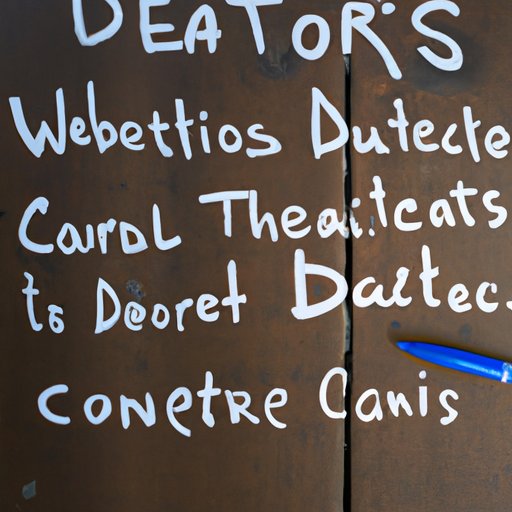 DEATOR'S
Webettios Dutecte
Caurdl Theaitcats
ts Deoret Daltec.
CoNetre Canis